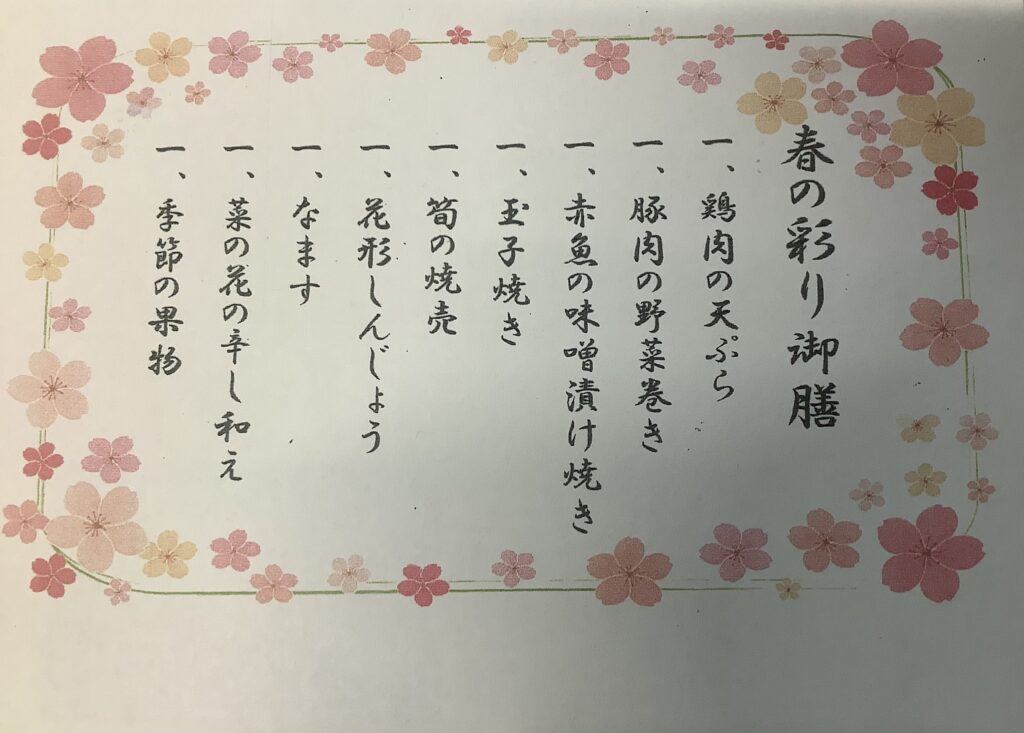 春の彩り御膳
一、鶏肉の天ぷら
一、豚肉の野菜巻き
一、赤魚の味噌漬け焼き
一、玉子焼き
一、筍の焼売
一、花形しんじょう
一、なます
一、菜の花の辛し和え
一、季節の果物